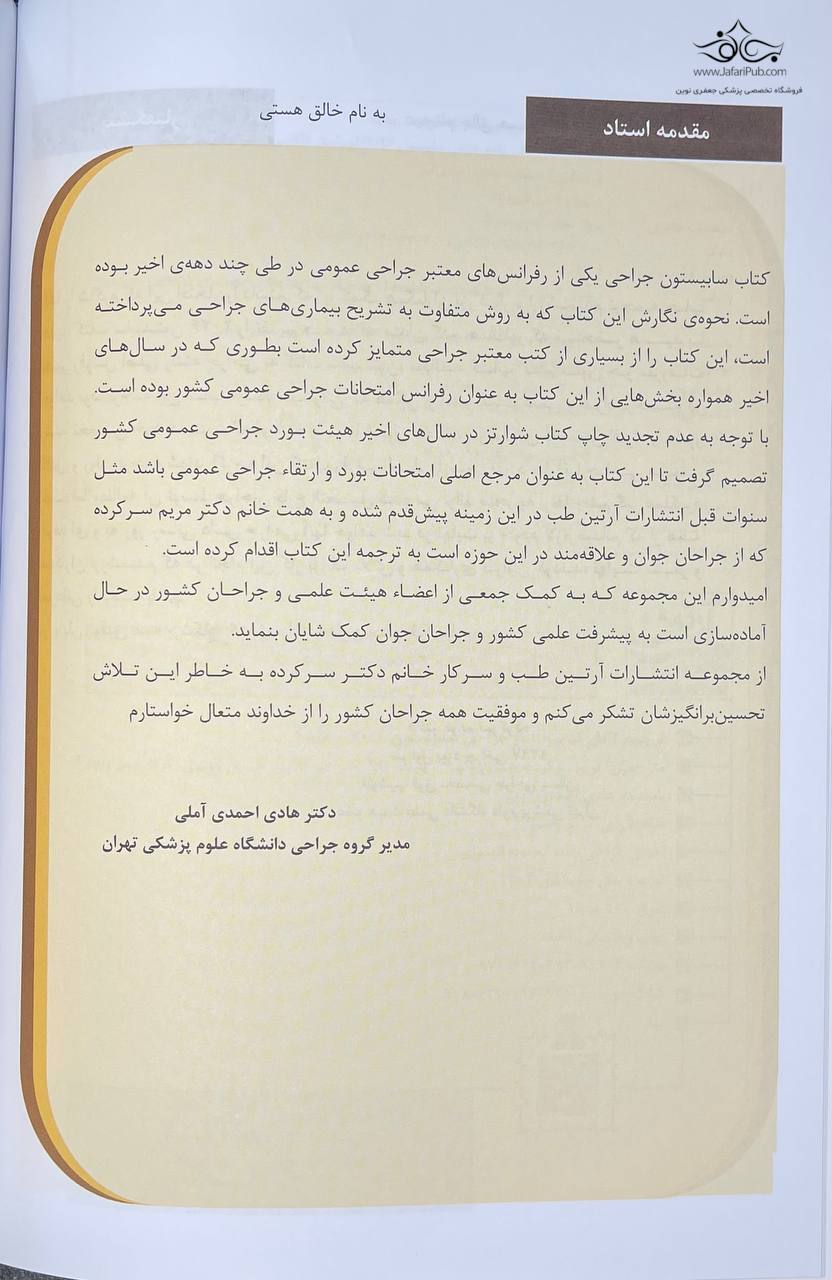 www.JafariPub.com
فروشگاه تخصصی پزشکی جعفری نوین
به نام خالق هستی
مقدمه استاد
کتاب سابیستون جراحی یکی از رفرانس‌های معتبر جراحی عمومی در طی چند دهه‌ی اخیر بوده
است. نحوه‌ی نگارش این کتاب که به روش متفاوت به تشریح بیماری‌های جراحی می‌پرداخته
است، این کتاب را از بسیاری از کتب معتبر جراحی متمایز کرده است بطوری که در سال‌های
اخیر همواره بخش‌هایی از این کتاب به عنوان رفرانس امتحانات جراحی عمومی کشور بوده است.
با توجه به عدم تجدید چاپ کتاب شوارتز در سال‌های اخیر هیئت بورد جراحی عمومی کشور
تصمیم گرفت تا این کتاب به عنوان مرجع اصلی امتحانات بورد و ارتقاء جراحی عمومی باشد مثل
سنوات قبل انتشارات آرتین طب در این زمینه پیش‌قدم شده و به همت خانم دکتر مریم سرکرده
که از جراحان جوان و علاقه‌مند در این حوزه است به ترجمه این کتاب اقدام کرده است.
امیدوارم این مجموعه که به کمک جمعی از اعضاء هیئت علمی و جراحان کشور در حال
آماده‌سازی است به پیشرفت علمی کشور و جراحان جوان کمک شایان بنماید.
از مجموعه انتشارات آرتین طب و سرکار خانم دکتر سرکرده به خاطر این تلاش
تحسین‌برانگیزشان تشکر می‌کنم و موفقیت همه جراحان کشور را از خداوند متعال خواستارم
دکتر هادی احمدی آملی
مدیر گروه جراحی دانشگاه علوم پزشکی تهران